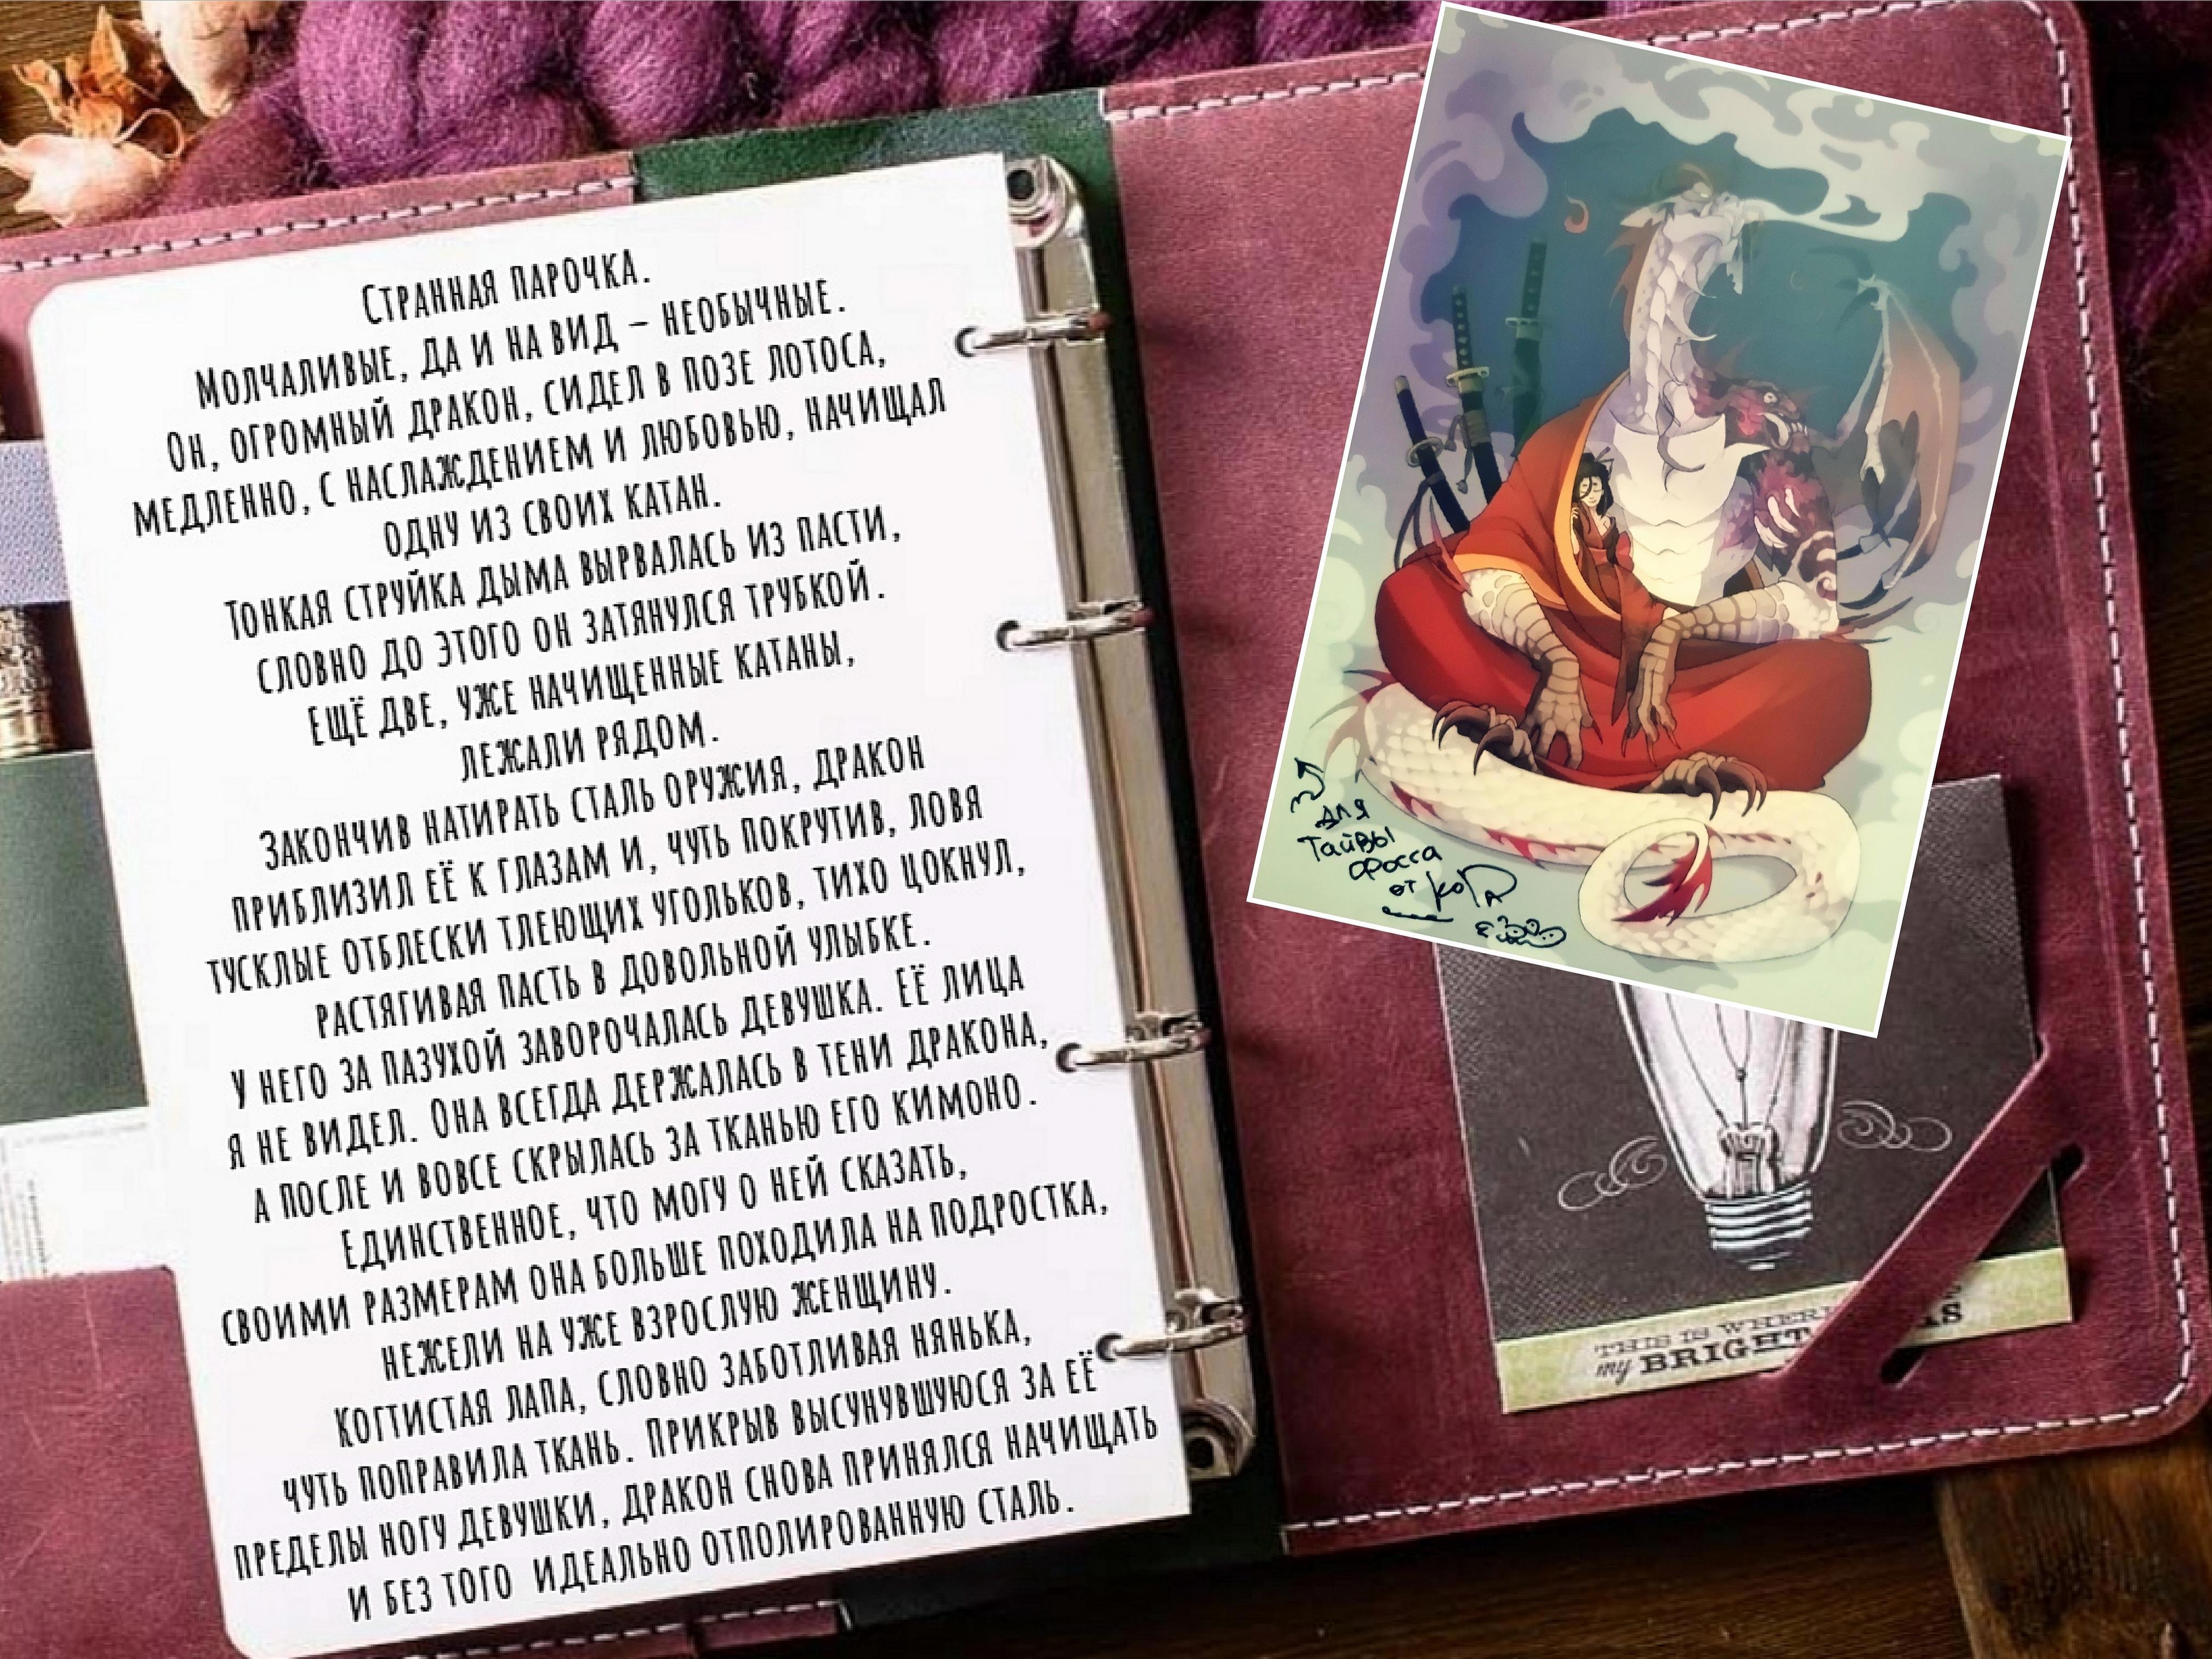 Странная парочка.
Молчаливые, да и на вид – необычные.
Он, огромный дракон, сидел в позе лотоса,
медленно, с наслаждением и любовью, начищал
одну из своих катан.
Тонкая струйка дыма вырвалась из пасти,
словно до этого он затянулся трубкой.
Ещё две, уже начищенные катаны,
лежали рядом.
Закончив натирать сталь оружия, дракон
приблизил её к глазам и, чуть покрутив, ловя
тусклые отблески тлеющих угольков, тихо цокнул,
растягивая пасть в довольной улыбке.
У него за пазухой заворочалась девушка. Её лица
я не видел. Она всегда держалась в тени дракона,
а после и вовсе скрылась за тканью его кимоно.
Единственное, что могу о ней сказать,
своими размерам она больше походила на подростка,
нежели на уже взрослую женщину.
Когтистая лапа, словно заботливая нянька,
чуть поправила ткань. Прикрыв высунувшуюся за её
пределы ногу девушки, дракон снова принялся начищать
и без того идеально отполированную сталь.
для
Тайвы
Фосса
от
THIS IS WHERE
my BRIGHT